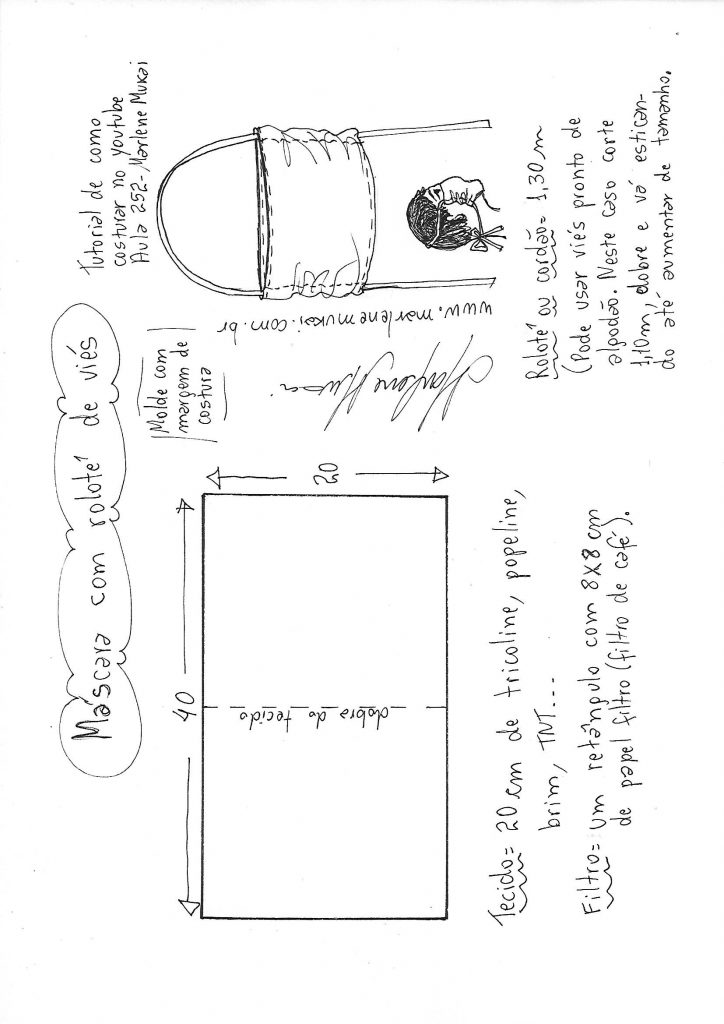 Máscara com roloté de viés
Tutorial de como
costurar no youtube
Aula 252- Marlene Mukai
Molde com
margem de
costura
www.marlenemukai.com.br
Marlene Mukai
40
20
dobra do tecido
Tecido= 20 cm de tricoline, popeline,
brim, TNT...
Filtro= um retângulo com 8X8 cm
de papel filtro (filtro de café).
Roloté ou cordão= 1,30 m
(Pode usar viés pronto de
algodão. Neste caso corte
1,10m, dobre e vá estican-
do até aumentar de tamanho.